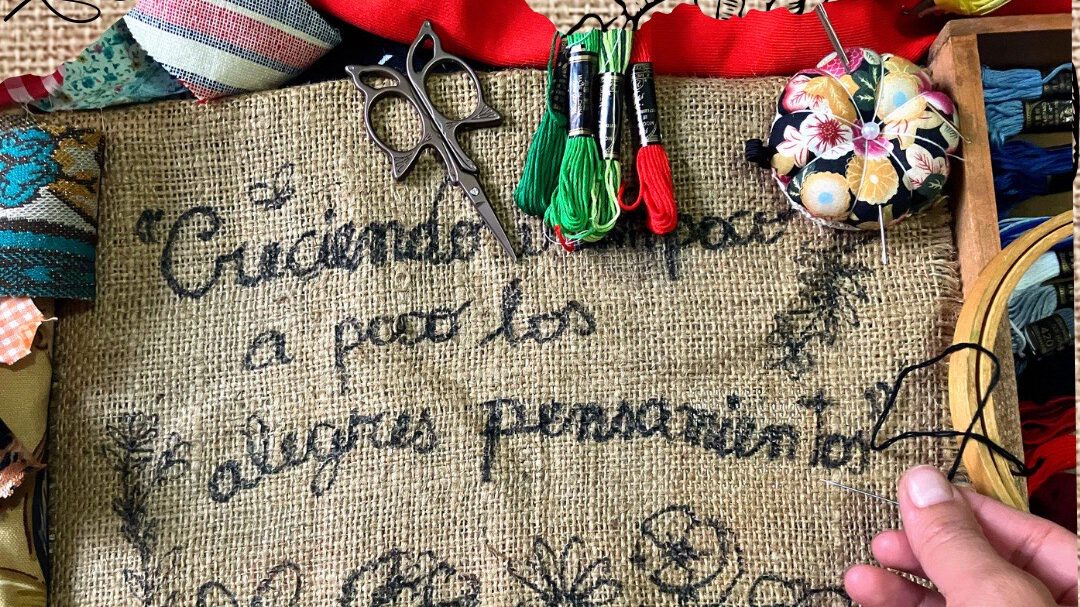 "Creciendo poco
a poco los
alegres pensamientos"